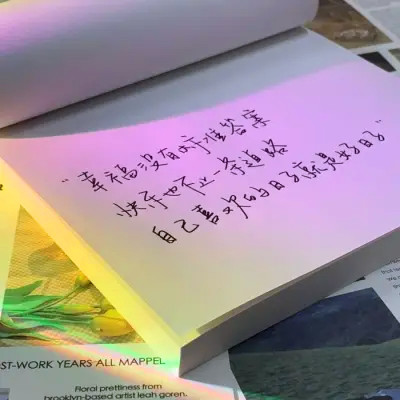 “幸福没有标准答案
快乐也不止一条道路
自己喜欢的日子就是好日子”
OST-WORK YEARS ALL MAPPEL
Floral prettiness from
brooklyn-based artist leah goren.